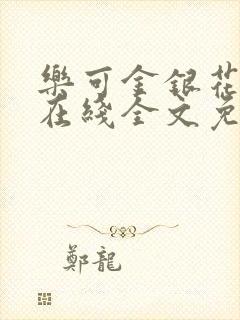 樂可金銀花
在綫全文免
鄭龍